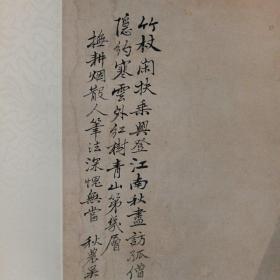 竹杖閑扶乘興登江南秋盡訪孤僧
隱約寒雲外紅樹青山第幾層
撫耕烟散人筆法深愧無當 秋農吳